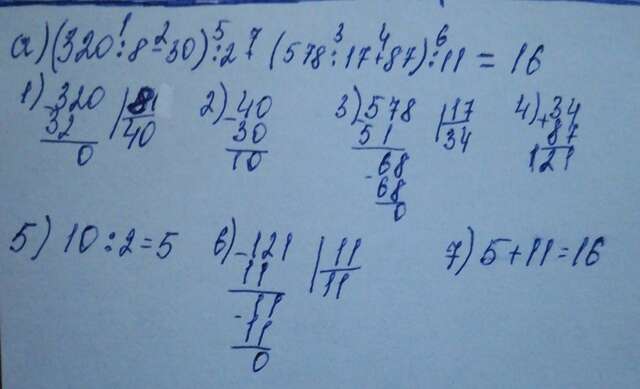 a) (320 : 8 - 30) : 2 + (578 : 17 + 87) : 11 = 16
1 2 5 7 3 4 6
1) -320 | 8 2) -40 3) -578 | 17 4) +34
32 40 30 51 34 87
0 10 -68 121
68
0
5) 10 : 2 = 5 6) -121 | 11 7) 5 + 11 = 16
11 11
-11
11
0